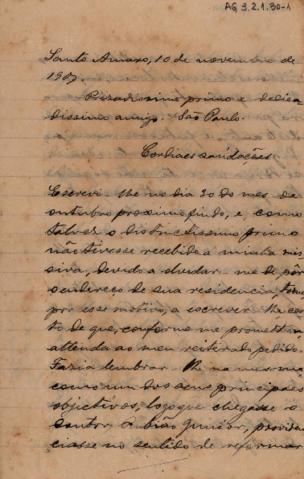 AG 3.2.1.30-1
Santo Amaro, 10 de novembro de
1907.
Presadissimo primo e dedica
dissimo amigo. São Paulo.
Cordiaes saudações.
Escrevi-lhe no dia 20 do mes de
outubro proximo findo, e, como
talvez o distinctissimo primo
não tivesse recebido a minha mis
siva, devido a olvidar-me de pôr
o endereço de sua residencia,
por esse motivo, a escrever-lhe
to de que, conforme me prometteu,
attenda ao meu reiterado pedido.
Faria lembrar-lhe na mesma,
como um dos seus principaes
objectivos, logo que chegasse o
Doutor Julião Junior, providen
ciasse no sentido de reformar